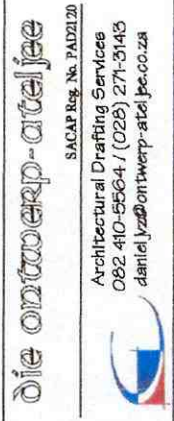 Die ontwerp-ateljee
SACAP Reg. No. PAD2120
Architectural Drafting Services
082 410-5564 / (028) 271-3143
danieljvz@ontwerp-ateljee.co.za